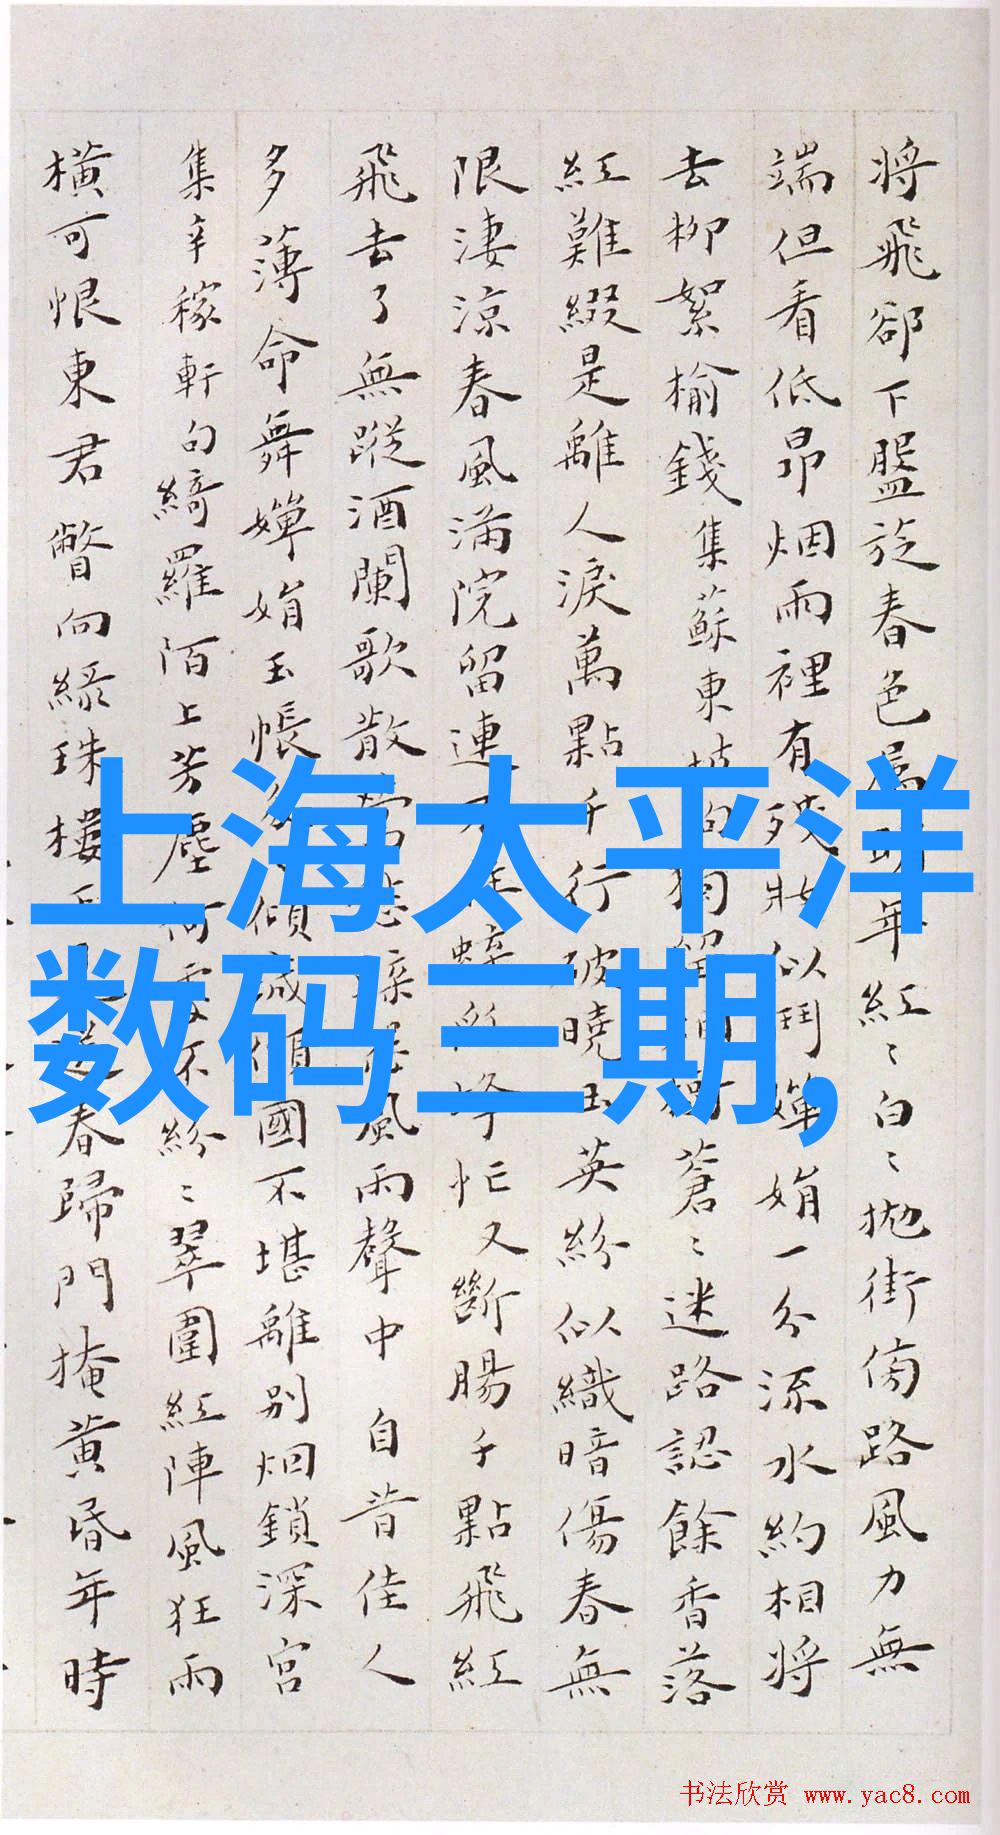 将飛卻下盤旋春色屬明年紅〻白〻拋街傍路風力無
端但看低昂烟雨裡有殘妝似鬥嬋娟一分流水約相将
去柳絮榆錢集蘇東坡句
蒼〻迷路認餘香落
紅難綴是離人淚萬點千行破曉玉英紛似織暗傷春無
限淒涼春風滿院留連
忙又斷腸千點飛紅
飛去了無蹤酒闌歌散
風雨聲中 自昔佳人
多薄命舞嬋娟玉帳
傾城傾國不堪離别烟鎖深宮
集辛稼軒句綺羅陌上芳塵
不紛〻翠圍紅陣風狂雨
橫可恨東君瞥向綠珠樓
春歸門掩黃昏年時
上海太平洋
数码三期,
书法欣赏 www.yac8.com